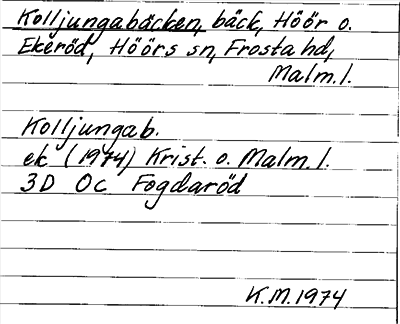 Kolljungabäcken, bäck, Höör o.
Ekeröd, Höörs sn, Frosta hd,
Malm.l.
Kolljungab.
ek (1974) Krist. o. Malm.l.
3D Oc Fogdaröd
K.M.1974